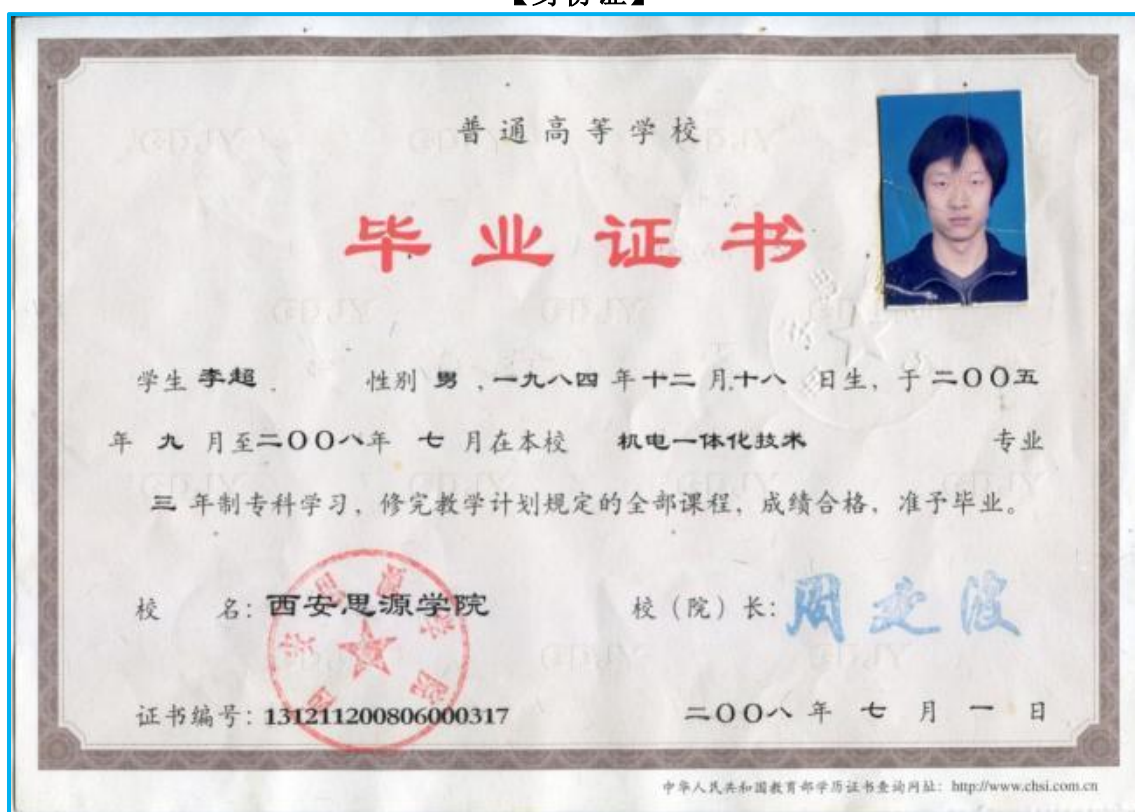 【身份证】
普通高等学校
毕业证书
学生 李超 . 性别 男 ,一九八四 年十二 月,十八 日生, 于二〇〇五
年 九 月至二〇〇八年 七 月在本校 机电一体化技术 专业
三 年制专科学习, 修完教学计划规定的全部课程, 成绩合格, 准予毕业。
校 名: 西安思源学院 校(院)长: 周延波
西安思源学院
证书编号: 131211200806000317 二〇〇八 年 七 月 一 日
中华人民共和国教育部学历证书查询网址: http://www.chsi.com.cn